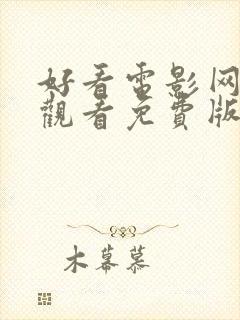 好看电影网
觀看免費版
木幕慕